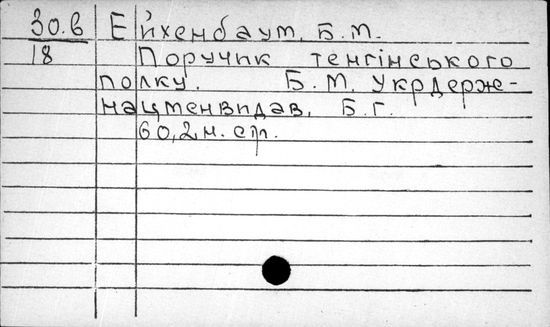 30.в Ейхенбаум, Б.М.
18 Поручик тенгінського
полку. Б.М. Укрдерж-
нацменвидав, Б.Г.
60,2,н. стр.